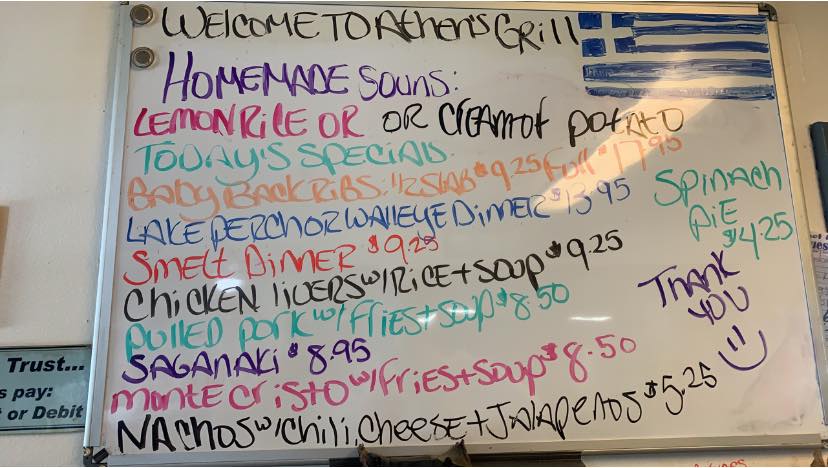 WELCOME TO Athen's Grill
HOMEMADE Soups:
LEMON RICE OR OR CREAM of potato
TODAY'S SPECIALS
BABY BACK RIBS: 1/2 SLAB $9.25 Full $17.95
LAKE PERCH OR WALLEYE DINNER $13.95
SMELT DINNER $9.25
CHICKEN LIVERS w/ RICE + SOUP $9.25
PULLED PORK w/ FRIES + SOUP $8.50
SAGANAKI $8.95
MONTE CRISTO w/ FRIES + SOUP $8.50
NACHOS w/ Chili, Cheese + JALAPENOS $5.25
SPINACH
PIE
$4.25
THANK
YOU
Trust...
s pay:
or Debit